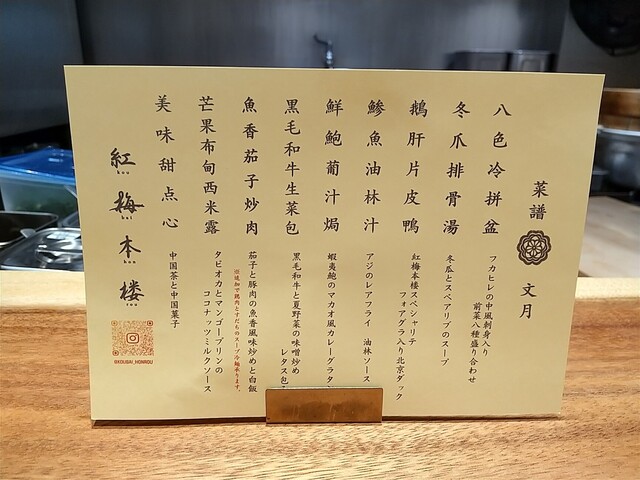 菜譜
文月
八色冷拼盆
フカヒレの中風刺身入り
前菜八種盛り合わせ
冬爪排骨湯
冬瓜とスペアリブのスープ
鵝肝片皮鴨
紅梅本楼スペシャリテ
フォアグラ入り北京ダック
鯵魚油林汁
アジのレアフライ 油林ソース
鮮鮑葡汁焗
蝦夷鮑のマカオ風カレーグラタ
黒毛和牛生菜包
黒毛和牛と夏野菜の味噌炒め
レタス包
魚香茄子炒肉
茄子と豚肉の魚香風味炒めと白飯
※追加で鶏肉とすだちのスープ冷麺承ります。
芒果布甸西米露
タピオカとマンゴープリンの
ココナッツミルクソース
美味甜点心
中国茶と中国菓子
紅梅本楼
@KOUBAI_HONROU